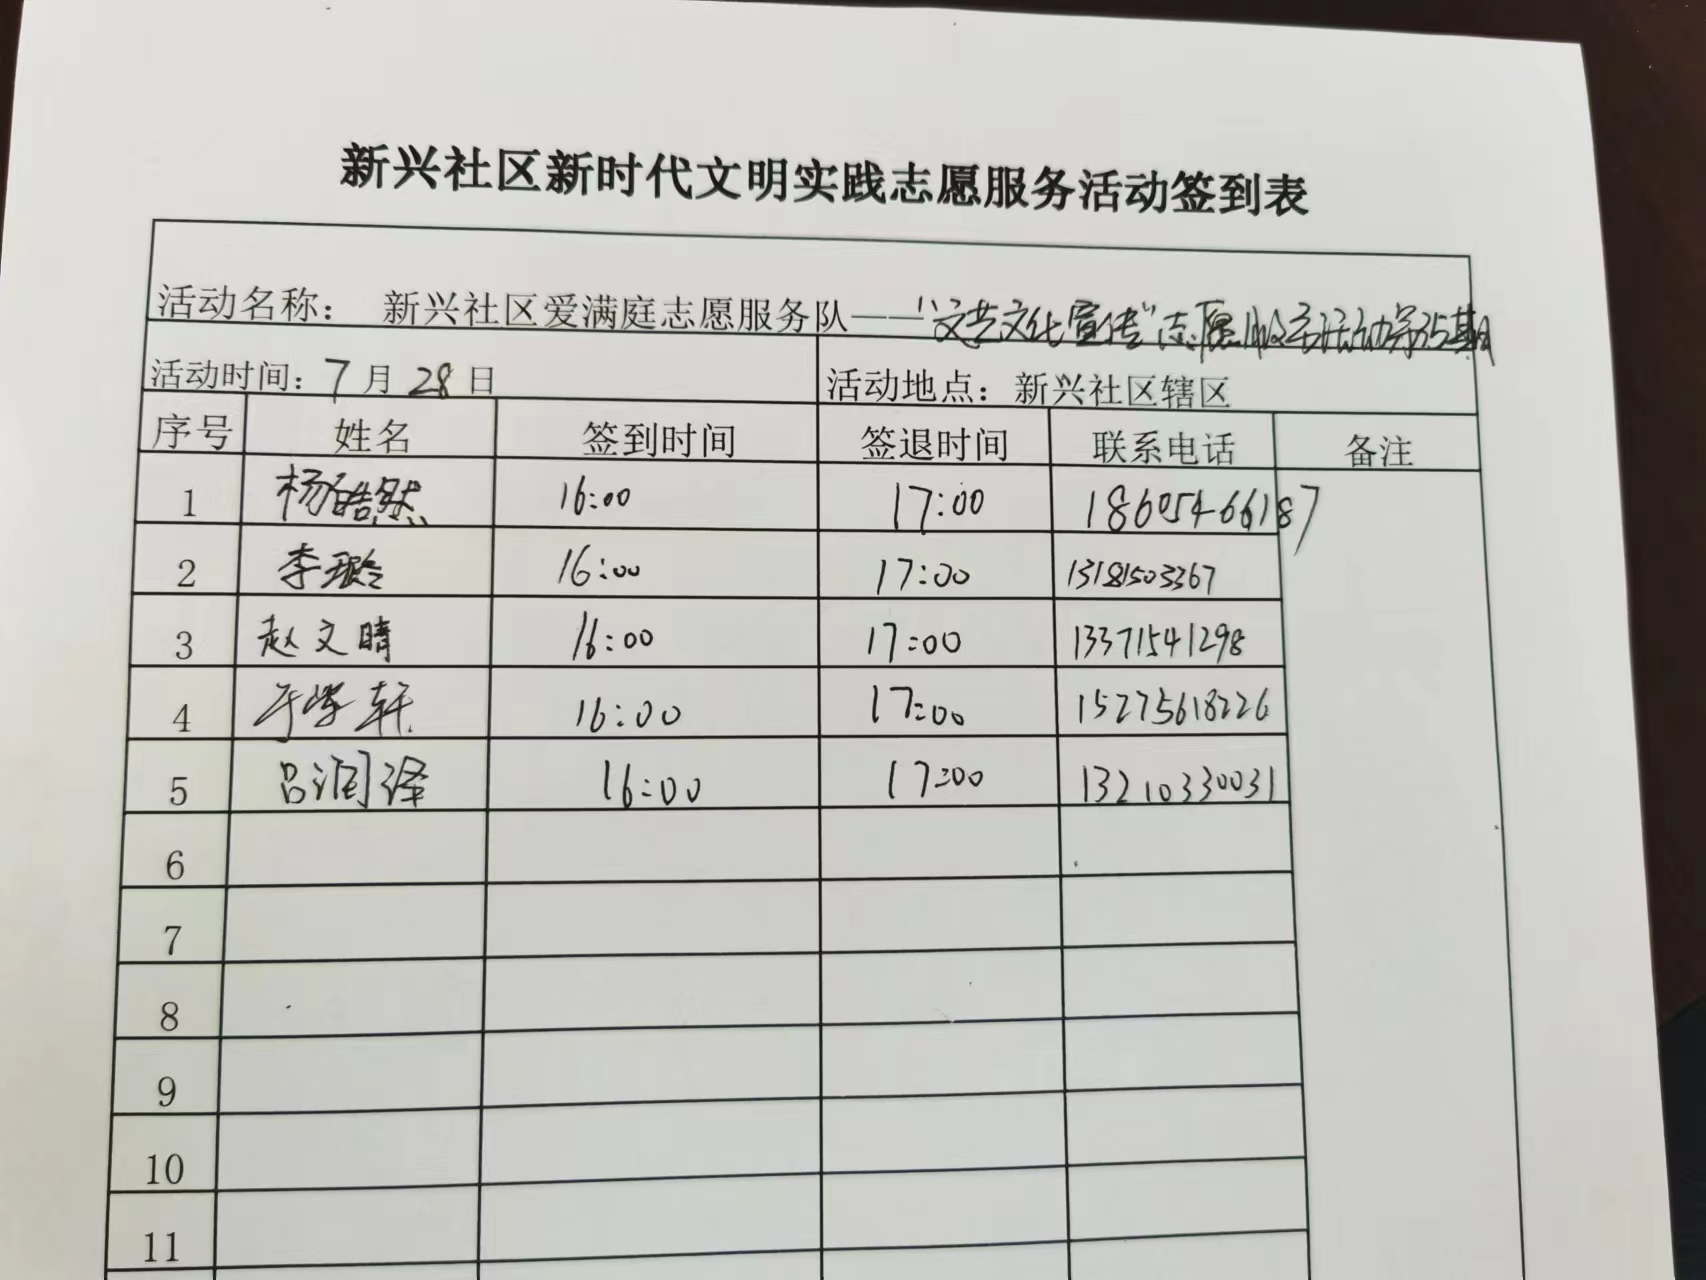 新兴社区新时代文明实践志愿服务活动签到表
活动名称： 新兴社区爱满庭志愿服务队——“文艺文化宣传”志愿服务活动第35期
活动时间：7月28日 活动地点：新兴社区辖区
序号 姓名 签到时间 签退时间 联系电话 备注
1 杨皓然 16:00 17:00 18605466187
2 李璐 16:00 17:00 13181503367
3 赵文晴 16:00 17:00 13371541298
4 于学轩 16:00 17:00 15275618226
5 吕润泽 16:00 17:00 13210330031
6
7
8
9
10
11